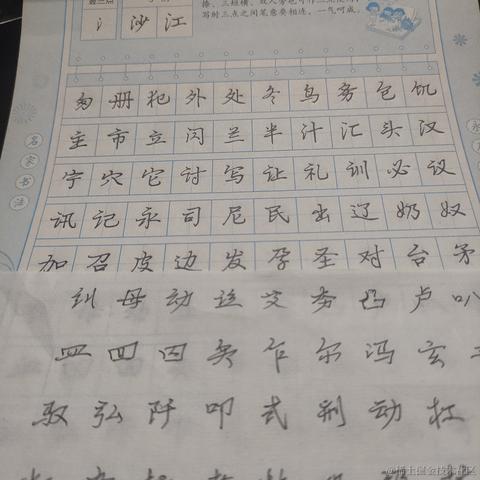 沙 江
捺、三短横、
写时三点之间笔意要相连，一气呵成。
名家书法
匆 册 犯 外 处 冬 鸟 务 包 饥
主 市 立 闪 兰 半 汁 汇 头 汉
宁 穴 它 讨 写 让 礼 训 必 议
讯 记 永 司 尼 民 出 辽 奶 奴
加 召 皮 边 发 孕 圣 对 台 矛
纠 母 动 边 交 夯 凸 卢 叭
皿 四 囚 矢 乍 尔 冯 玄
驭 弘 阡 叩 式 刑 动 扛
@稀土掘金技术社区